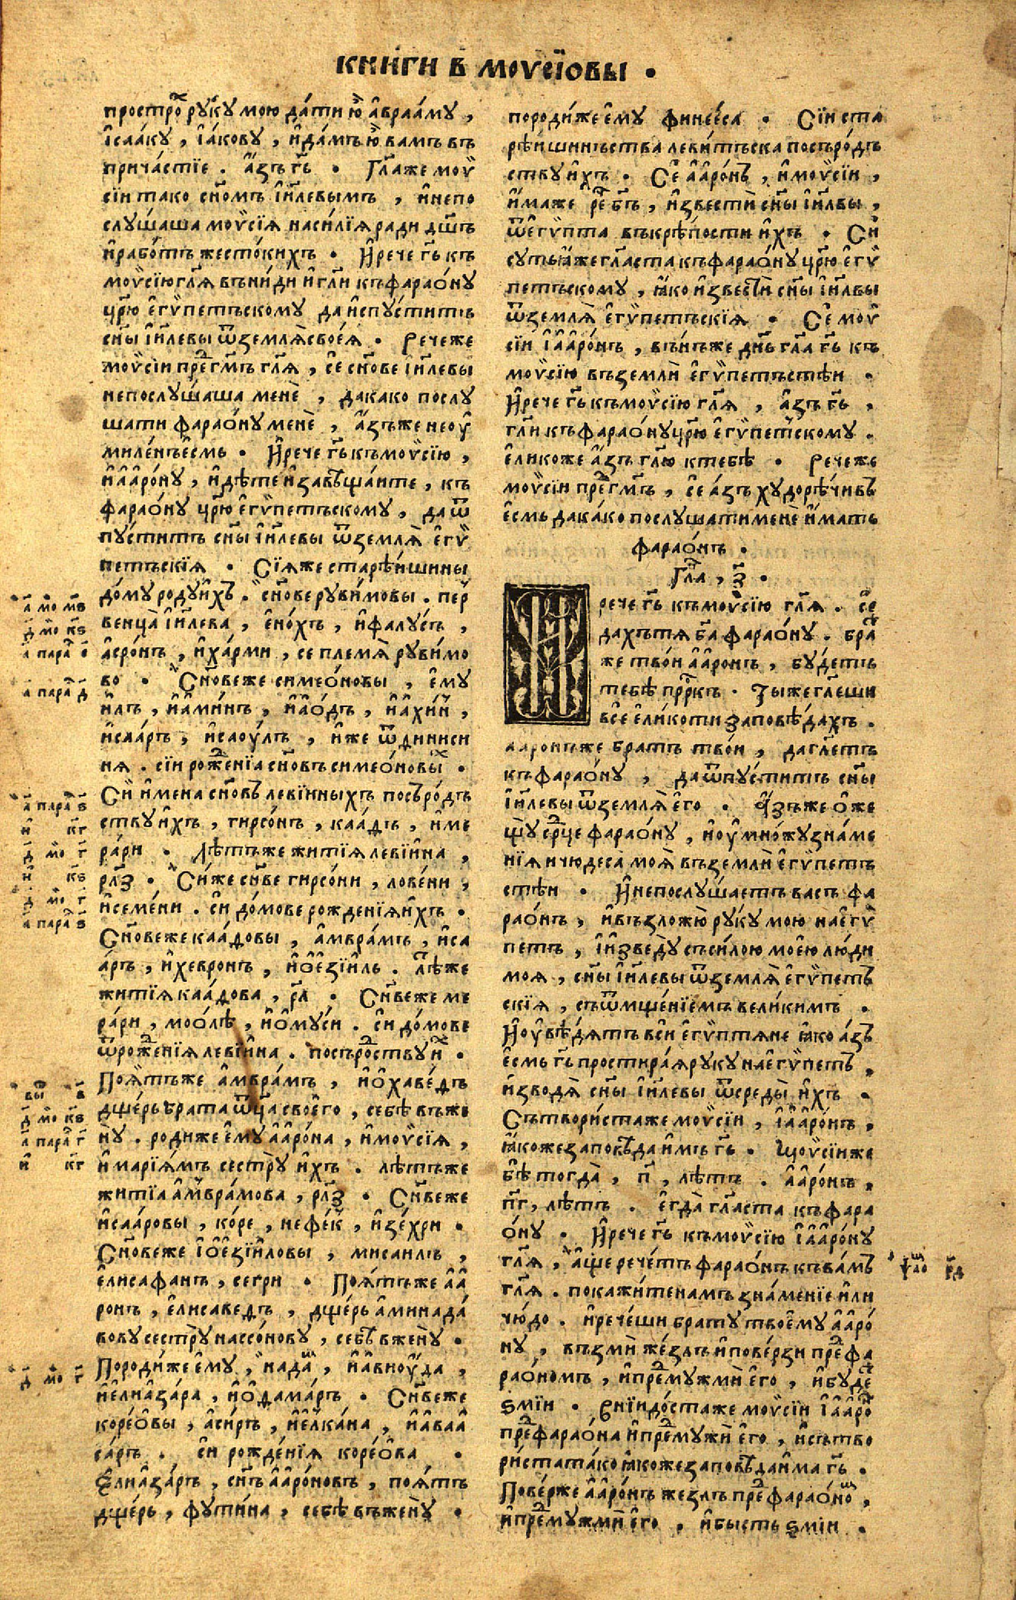 КНИ́ГИ В҃ МОѴСІ́ОВЫ .
простро̀ рꙋ́кꙋ мою да́ти ю҆̀ а҆враа́мꙋ ,
і҆саа́кꙋ , і҆а́ковꙋ , и҆да́мъ ю҆̀ вамъ въ
прича́стїе . а҆́зъ гь҃ . Гл҃аже моѷ
сїи тако сн҃омъ і҆и҃левымъ , и҆непо
слꙋ́шаша моѷсїѧ наси́лїѧ ради дш҃ъ
и҆рабо́тъ жесто́кихъ . И҆рече гь҃ къ
моѷсїю гл҃ѧ въни́ди и҆гл҃и къфарао́нꙋ
цр҃ю е҆гѵ́петъскомꙋ да и҆спꙋ́ститъ
сн҃ы і҆и҃левы ѿземлѧ̀своеѧ̀ . Речеже
моѷсїи пре́гь҃мъ гл҃ѧ , се сн҃ове і҆и҃левы
непослꙋ́шаша менѐ , дакако послꙋ
шати фарао́нꙋ менѐ , а҆́зъже неоу҆
миле́нъесмь . И҆рече гь҃ къмоѷсїю ,
и҆а҆а҆ро́нꙋ , и҆дѣ́теи҆заавѣща́ите , къ
фарао́нꙋ цр҃ю е҆гѵ́петъскомꙋ , да ѿ
пꙋ́ститъ сн҃ы і҆и҃левы ѿземлѧ̀ е҆гѵ́
петъскїѧ . Сїѧже старѣ́ишины
до́мꙋ родꙋ и҆́хъ . сн҃ове рꙋви́мовы . пер̾
венца̀ і҆и҃лева , е҆но́хъ , и҆фалꙋ́съ ,
а҆сро́нъ , и҆ха́рми , се племѧ̀ рꙋви́мо
во . Сн҃овеже симео́новы , е҆мꙋ
и҆лъ , и҆а҆ми́нъ , и҆а҆о́дъ , и҆а҆хи́н ,
и҆саа́ръ , и҆саоу́лъ , и҆́же ѿ динииси
нѧ . сїи рож́енїѧ сн҃овъ симео́новы́ .
Сѝ и҆мена сн҃овъ леви́нныхъ посъро́дъ
ствꙋ и҆́хъ , гирсо́нъ , каадъ , и҆ме
ра́ри . лѣтъже житїѧ леви́ина ,
рл҃з . Си́же сн҃ве гирсо́ни , лове́ни ,
и҆семе́ни . сѝ до́мове рожде́нїѧ и҆́хъ .
Сн҃овеже каа́довы , а҆мвра́мъ , и҆са
а́ръ , и҆хевронъ , и҆о҆езїи́ль . лѣже
житїѧ каа́дова , рл҃ . Сн҃веже ме
ра́ри , моолѣ̀ , и҆о҆мꙋ́си . сѝ до́мове
ѿроже́нїѧ леви́ина . посъроствꙋ и҆̀ .
Поѧ́тъже а҆мвра́мъ , и҆о҆хаве́дъ
дще́рь брата ѿц҃а своего̀ , себѣ въже
нꙋ̀ . родиже емꙋ̀ а҆а҆ро́на , и҆моѷсїѧ ,
и҆ марїѧ́мъ сестрꙋ̀ и҆́хъ . лѣтъже
житїѧ а҆мвра́мова , рл҃з . Сн҃веже
и҆саа́ровы , ко́ре , нефе́к , и҆зе́хри .
Сн҃овеже і҆о҆езїи́ловы , мисаилъ ,
е҆лисафа́нъ , се́гри . Поѧ́тъже а҆а
ронъ , е҆лисаведъ , дще́рь аминада́
вовꙋ сестрꙋ̀ нассо́новꙋ , себѣ̀ вженꙋ̀ .
Породи́же емꙋ̀ , нада̀ , и҆авиоу́да ,
и҆елиа́зара , и҆о҆дама́ръ . Сн҃веже
коре́о҆вы , а҆си́ръ , и҆елка́на , и҆а҆ваа҆
са́ръ . сѝ рожде́нїѧ коре́ова .
Е҆лиа́заръ , сн҃ъ а҆а҆ро́новъ , поѧ́тъ
дще́рь , фꙋти́на , себѣ въженꙋ̀ .
породи́же емꙋ̀ финее́са . Сїи ста
рѣ́ишиньства леви́тъска посъро́дъ
ствꙋ и҆́хъ . Сѐ а҆а҆ро́нъ , и҆моѷсїи ,
и҆́маже ре́ бг҃ъ , и҆звестѝ сн҃ы і҆и҃лвы ,
ѿе҆гѵ́пта въкрѣ́пости и҆́хъ . Сѝ
сꙋтьи҆́жеглаⷭ҇та къфарао́нꙋ цр҃ю е҆гѵ́
петъскомꙋ , ꙗ҆́ко и҆звестѝ сн҃ы і҆и҃лвы
ѿземлѧ̀ е҆гѵ́петъскїѧ . Сѐ моѷ
сїи і҆а҆а҆ро́нъ , въньже дн҃ь гл҃а гь҃ къ
моѷсїю въземлѝ е҆гѵ́петъстѣи .
И҆рече гь҃ къмоѷсїю гл҃ѧ , а҆́зъ гь҃ ,
гл҃и къфарао́нꙋцр҃ю е҆гѵ́петскомꙋ .
еликоже а҆́зъ гл҃ю ктебѣ̀ . Речеже
моѷсїи пре́гь҃мъ , се а҆́зъ хꙋдорѣ́чивъ
е҆смь дака́ко послꙋ́шати менѐ и҆́мать
фарао́нъ .
Гл҃а , з҃ .
рече гь҃ къмоѷсїю гл҃ѧ . сѐ
да́хътѧ бг҃а фарао́нꙋ . бра́
же твои а҆а҆ронъ , бꙋ́детъ
тебѣ̀ пр҃ркъ . Ты́жегле́ши
всѐ е҆ли́коти заповѣ́дахъ .
ааронъже братъ твои , даглетъ
къфарао́нꙋ , даѿпꙋ́ститъ сн҃ы
і҆и҃левы ѿземлѧ̀ е҆го . А҆́зъже о҆же
щꙋ̀ ср҃це фарао́нꙋ , и҆оу҆мно́жꙋзна́ме
нїѧ ичюдеса̀ моѧ̀ въземлѝ е҆гѵ́петъ
стѣи . И҆непослꙋ́шаетъ васъ фа
рао́нъ , и҆възложю̀ рꙋкꙋ мою на е҆гѵ́
петъ , і҆и҆зведꙋ̀ съси́лою мое́ю лю́ди
моѧ , сн҃ы і҆и҃левы ѿземлѧ̀ е҆гѵ́петъ
скїѧ , съѿмще́нїемъ вели́кимъ .
И҆оу҆вѣ́дѧтъ вси е҆гѵ́птѧне ꙗ҆́ко а҆́зъ
е҆смь гь҃ простира́ѧ рꙋкꙋ на е҆гѵ́петъ ,
и҆зводѧ̀ сн҃ы і҆и҃левы ѿсреды̀ и҆́хъ .
Сътвори́стаже моѷсїи , і҆а҆а҆ро́нъ ,
ꙗ҆́коже заповѣда и҆́мъ гь҃ . Моѷсїиже
бѣ̀ тогда̀ , п҃ , лѣтъ . а҆а҆ро́нъ ,
п҃г , лѣтъ . е҆гда̀ глаⷭ҇та къ фара
о́нꙋ . И҆рече гь҃ къмоѷсїю і҆а҆а҆ро́нꙋ
гл҃ѧ , а҆́ще рече́тъ фарао́нъ къвамъ
гл҃ѧ . покажи́тенамъ зна́менїе и҆ли
чю́до . и҆рече́ши братꙋ́ твоемꙋ̀ а҆а҆ро́
нꙋ , възмѝ же́злъ и҆пове́рзи пре́ фа
рао́номъ , и҆премꙋжмѝ его̀ , и҆бꙋ́де
ѕмїи . Внїидо́стаже моѷсїи і҆а҆а҆ро́
пре́фарао́на и҆пре́мꙋжѝ его̀ , и҆сътво
ри́ста та́ко ꙗ҆́коже заповѣ́да и҆́ма гь҃ .
Пове́рже а҆а҆ро́нъ же́злъ пре́ фарао́но ,
и҆пре́мꙋжмѝ е҆го , и҆бы́сть ѕмїи .